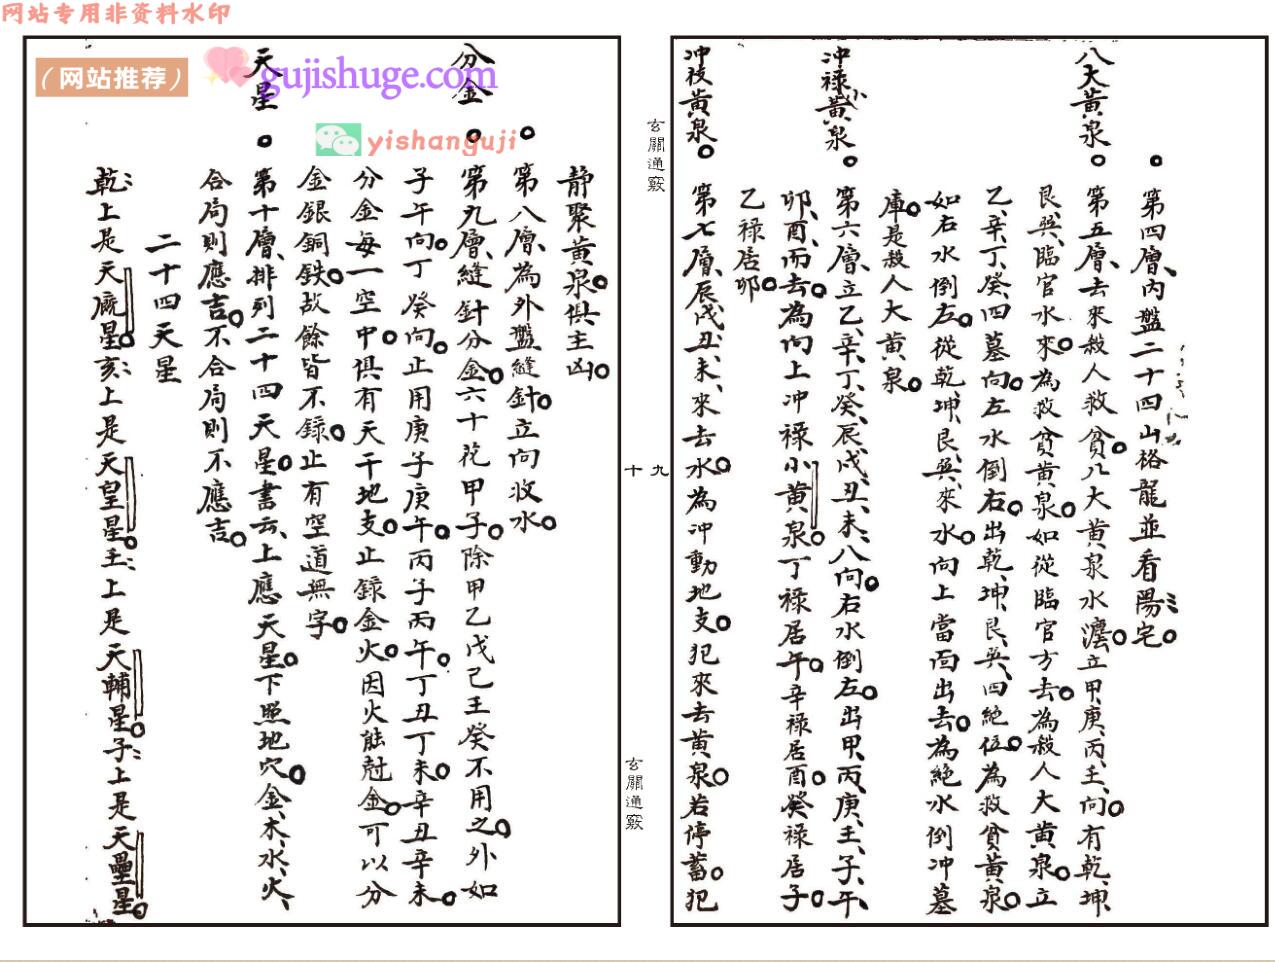 网站专用非资料水印
(网站推荐)
gujishuge.com
yishanguji
第四層、內盤二十四山格龍並看陽宅。
八大黃泉。
第五層、去來殺人救貧。八大黃泉水瀍。立甲、庚、丙、壬、向。有乾、坤、
艮、巽、臨官水來。為救貧黃泉。如從臨官方去。為殺人大黃泉。立
乙、辛、丁、癸、四墓向。左水倒右。出乾、坤、艮、巽、四絕位。為救貧黃泉。
如右水倒左。從乾、坤、艮、巽、來水。向上當面出去。為絕水倒冲墓
庫。是殺人大黃泉。
冲祿小黃泉。
第六層、立乙、辛、丁、癸、辰、戌、丑、未、八向。右水倒左。出甲、丙、庚、壬、子、午、
卯、酉、而去。為向上冲祿小黃泉。丁祿居午。辛祿居酉。癸祿居子。
乙祿居卯。
冲枝黃泉。
第七層、辰、戌、丑、未、來去水。為冲動地支。犯來去黃泉。若停蓄。犯
玄關通竅
十九
玄關通竅
靜聚黃泉。俱主凶。
第八層、為外盤縫針。立向收水。
分金。
第九層、縫針分金。六十花甲子。除甲乙戊己壬癸不用之。外如
子午向。丁癸向。止用庚子庚午。丙子丙午。丁丑丁未。辛丑辛未。
分金每一空中。俱有天干地支。止錄金火。因火能尅金。可以分
金銀銅鉄。故餘皆不錄。止有空道無字。
天星。
第十層、排列二十四天星。書云、上應天星。下照地穴。金、木、水、火、
合局則應吉。不合局則不應吉。
二十四天星
乾上是天廄星。亥上是天皇星。壬上是天輔星。子上是天壘星。